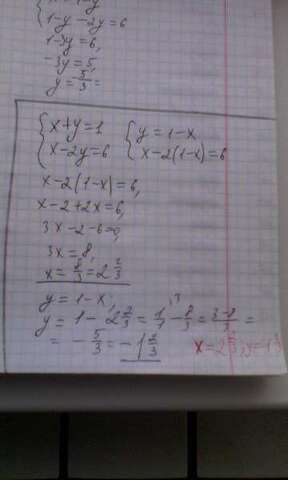 1-y-2y=6
1-3y=6,
-3y=5,
y=-5/3=
{x+y=1 {y=1-x
{x-2y=6 {x-2(1-x)=6
x-2(1-x)=6,
x-2+2x=6,
3x-2-6=0,
3x=8,
x=8/3=2 2/3
y=1-x,
y=1-2 2/3=1/1-8/3=(3-8)/3=
=-5/3=-1 2/3